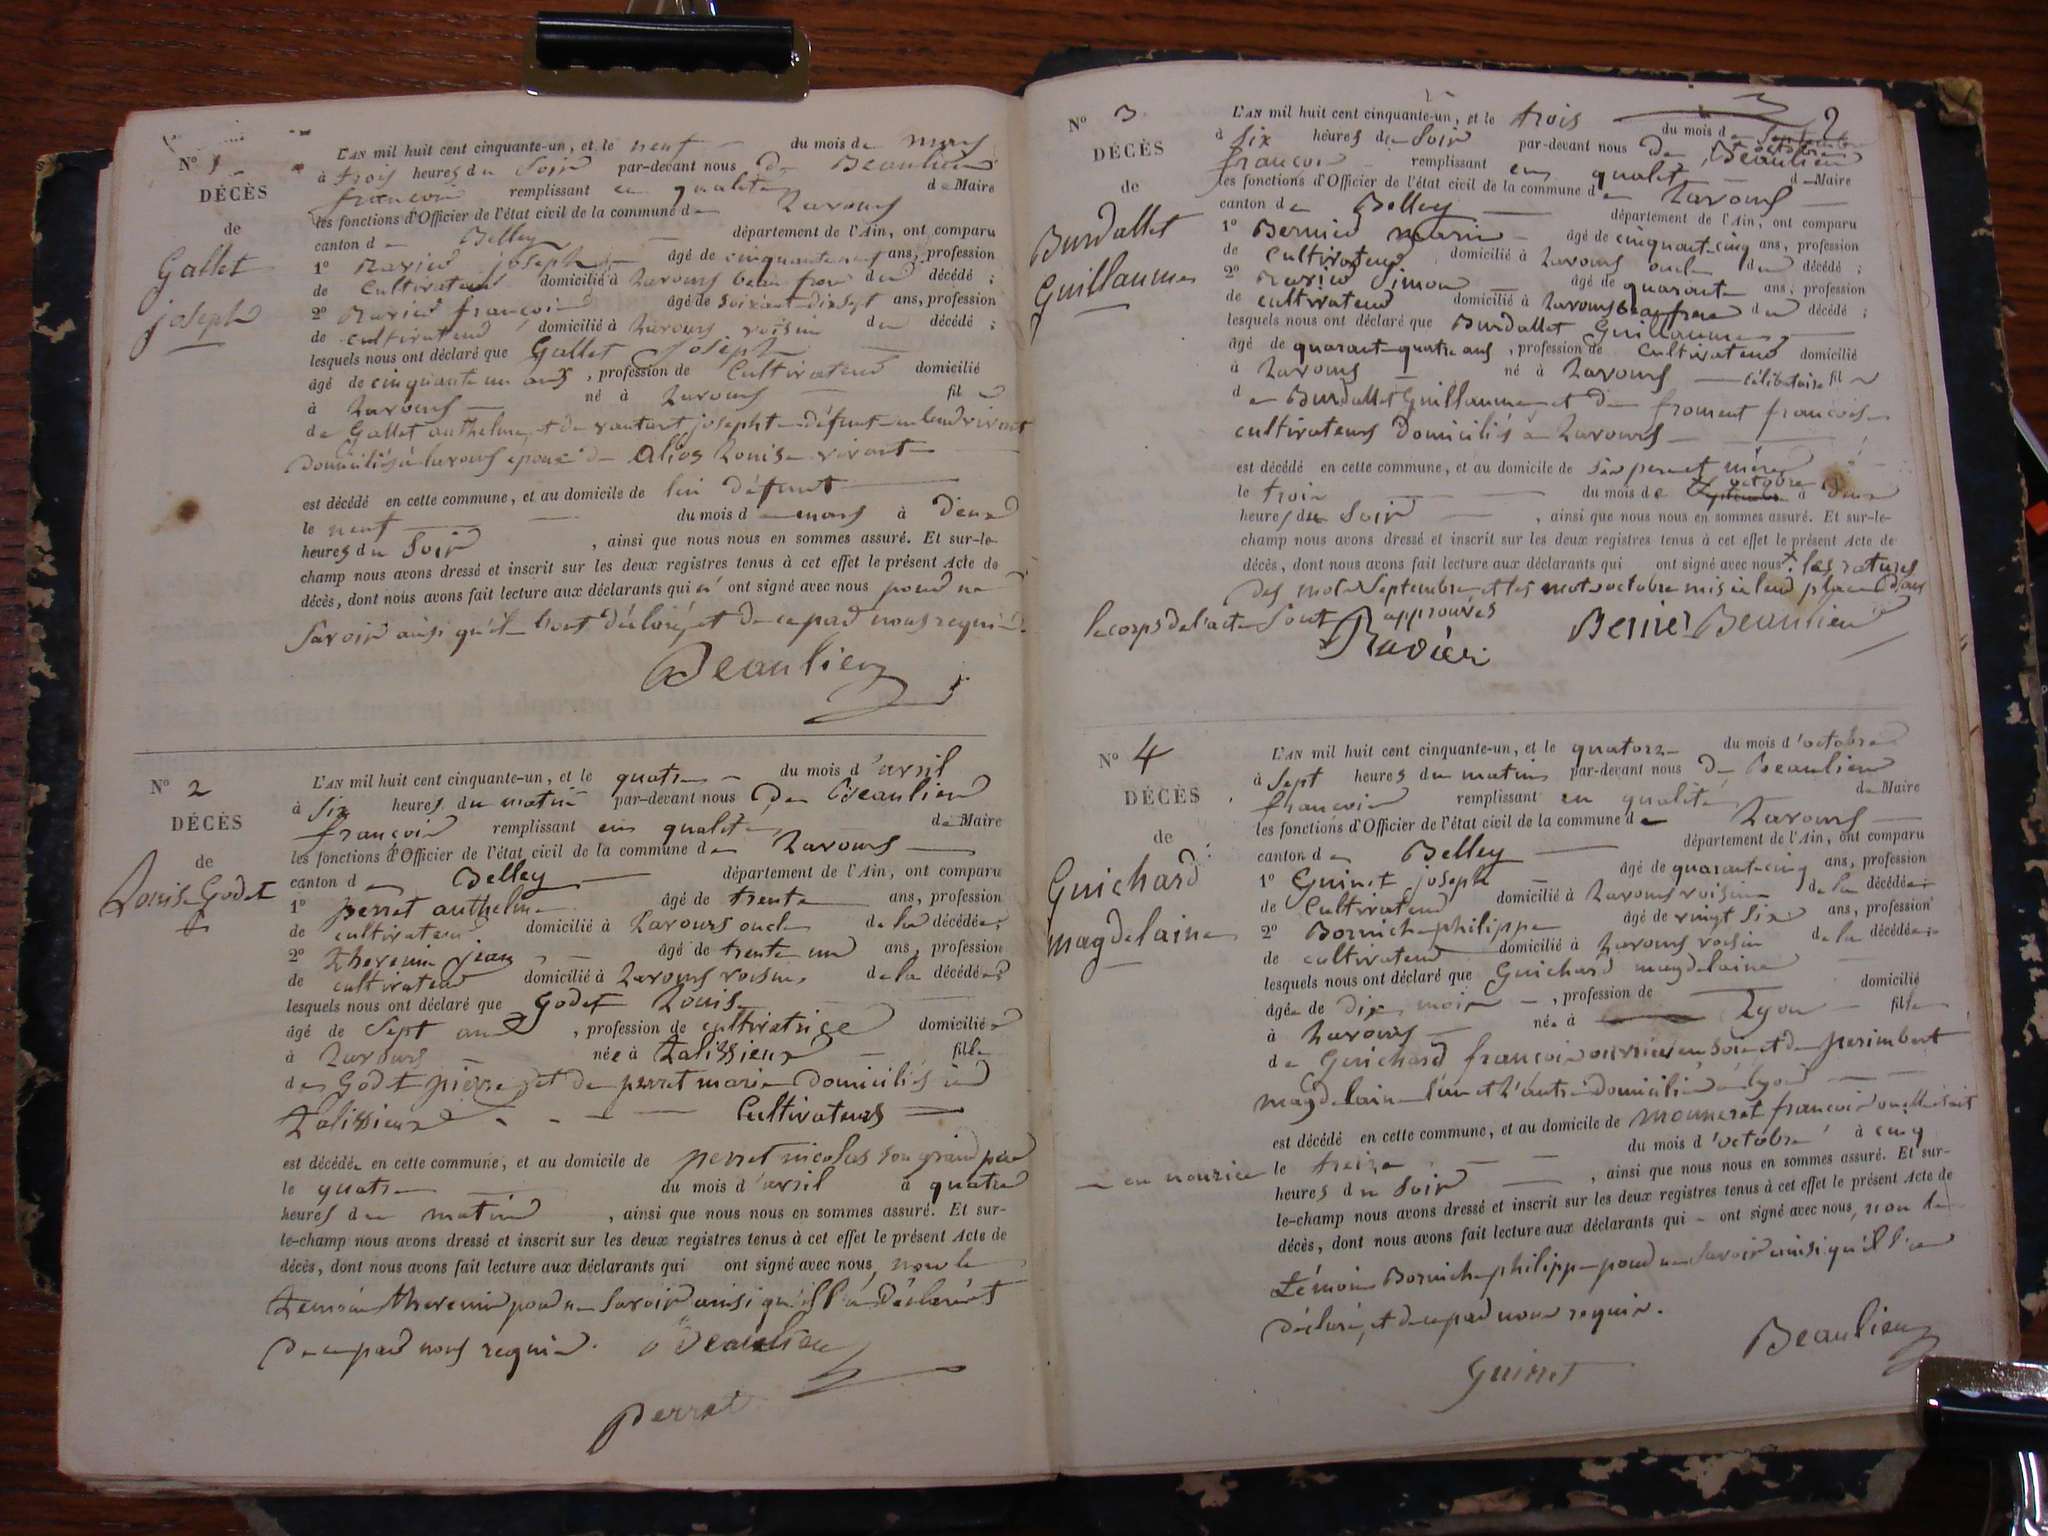 N° 1
DÉCÈS
de
Gallet
joseph
L'AN mil huit cent cinquante-un, et le neuf du mois de mars
à trois heures du soir par-devant nous De Beaulieu
françois remplissant en qualité de Maire
les fonctions d'Officier de l'état civil de la commune de Lavours
canton de Belley département de l'Ain, ont comparu
1° Ravier joseph âgé de cinquante ans, profession
de Cultivateur domicilié à Lavours beau frere du décédé ;
2° Ravier françois âgé de soixante dix sept ans, profession
de cultivateur domicilié à Lavours voisin du décédé ;
lesquels nous ont déclaré que Gallet Joseph
âgé de cinquante un ans, profession de Cultivateur domicilié
à Lavours né à Lavours fils
de Gallet anthelme et de josephte défunts en leur vivant
domiciliés à lavours epoux de Louise vivante
est décédé en cette commune, et au domicile de lui défunt
le neuf du mois de mars à deux
heures du Soir, ainsi que nous nous en sommes assuré. Et sur-le-
champ nous avons dressé et inscrit sur les deux registres tenus à cet effet le présent Acte de
décès, dont nous avons fait lecture aux déclarants qui n' ont signé avec nous pour ne
savoir ainsi qu'ils l'ont déclaré, et de ce par nous requis.
DeBeaulieu
N° 2
DÉCÈS
de
Louise Godet
L'AN mil huit cent cinquante-un, et le quatre du mois d'avril
à six heures du matin par-devant nous De Beaulieu
françois remplissant en qualité de Maire
les fonctions d'Officier de l'état civil de la commune de Lavours
canton de Belley département de l'Ain, ont comparu
1° perret anthelme âgé de trente ans, profession
de cultivateur domicilié à Lavours oncle de la décédée ;
2° therenin jean âgé de trente un ans, profession
de cultivateur domicilié à Lavours voisin de la décédée ;
lesquels nous ont déclaré que Godet Louise
âgé de Sept ans, profession de cultivatrice domiciliée
à Lavours née à Talissieux fille
de Godet pierre et de perret marie Domiciliés à
Talissieux Cultivateurs
est décédée en cette commune, et au domicile de perret nicolas son grand pere
le quatre du mois d'avril à quatre
heures du matin, ainsi que nous nous en sommes assuré. Et sur-
le-champ nous avons dressé et inscrit sur les deux registres tenus à cet effet le présent Acte de
décès, dont nous avons fait lecture aux déclarants qui ont signé avec nous, non le
temoin therenin pour ne savoir ainsi qu'il l'a Déclaré et
de ce par nous requis. DeBeaulieu
perret
2
N° 3
DÉCÈS
de
Burdallet
Guillaume
L'AN mil huit cent cinquante-un, et le trois du mois de Septembre octobre
à six heures du Soir par-devant nous De Beaulieu
françois remplissant en qualité de Maire
les fonctions d'Officier de l'état civil de la commune de Lavours
canton de Belley département de l'Ain, ont comparu
1° Bernier marin âgé de cinquante cinq ans, profession
de Cultivateur domicilié à Lavours oncle du décédé ;
2° Ravier Simon âgé de quarante ans, profession
de cultivateur domicilié à Lavours beau frere du décédé ;
lesquels nous ont déclaré que Burdallet Guillaume
âgé de quarante quatre ans, profession de Cultivateur domicilié
à Lavours né à Lavours célibataire fils
de Burdallet Guillaume et De froment françoise
cultivateurs Domiciliés à Lavours
est décédé en cette commune, et au domicile de ses pere et mère
le trois du mois de Septembre octobre à deux
heures du Soir, ainsi que nous nous en sommes assuré. Et sur-le-
champ nous avons dressé et inscrit sur les deux registres tenus à cet effet le présent Acte de
décès, dont nous avons fait lecture aux déclarants qui ont signé avec nous. les ratures
des mots Septembre et les mots octobre mis à leur place Dans
le corps de l'acte sont approuvés
Ravier Bernier Beaulieu
N° 4
DÉCÈS
de
Guichard
magdelaine
L'AN mil huit cent cinquante-un, et le quatorze du mois d'octobre
à Sept heures du matin par-devant nous De Beaulieu
françois remplissant en qualité de Maire
les fonctions d'Officier de l'état civil de la commune de Lavours
canton de Belley département de l'Ain, ont comparu
1° Guinet joseph âgé de quarante cinq ans, profession
de Cultivateur domicilié à Lavours voisin de la décédée ;
2° Borniche philippe âgé de vingt six ans, profession
de cultivateur domicilié à Lavours voisin de la décédée ;
lesquels nous ont déclaré que Guichard magdelaine
âgée de dix mois, profession de domicilié
à Lavours née à Lyon fille
de Guichard françois ouvrier en soie et de perimbert
magdelaine l'un et l'autre Domiciliés à lyon
est décédé en cette commune, et au domicile de monneret françois ou elle était
en nourice le treize du mois d'octobre à cinq
heures du Soir, ainsi que nous nous en sommes assuré. Et sur-
le-champ nous avons dressé et inscrit sur les deux registres tenus à cet effet le présent Acte de
décès, dont nous avons fait lecture aux déclarants qui ont signé avec nous, non le
témoin Borniche philippe pour ne Savoir ainsi qu'il l'a
déclaré, et de ce par nous requis.
Guinet Beaulieu